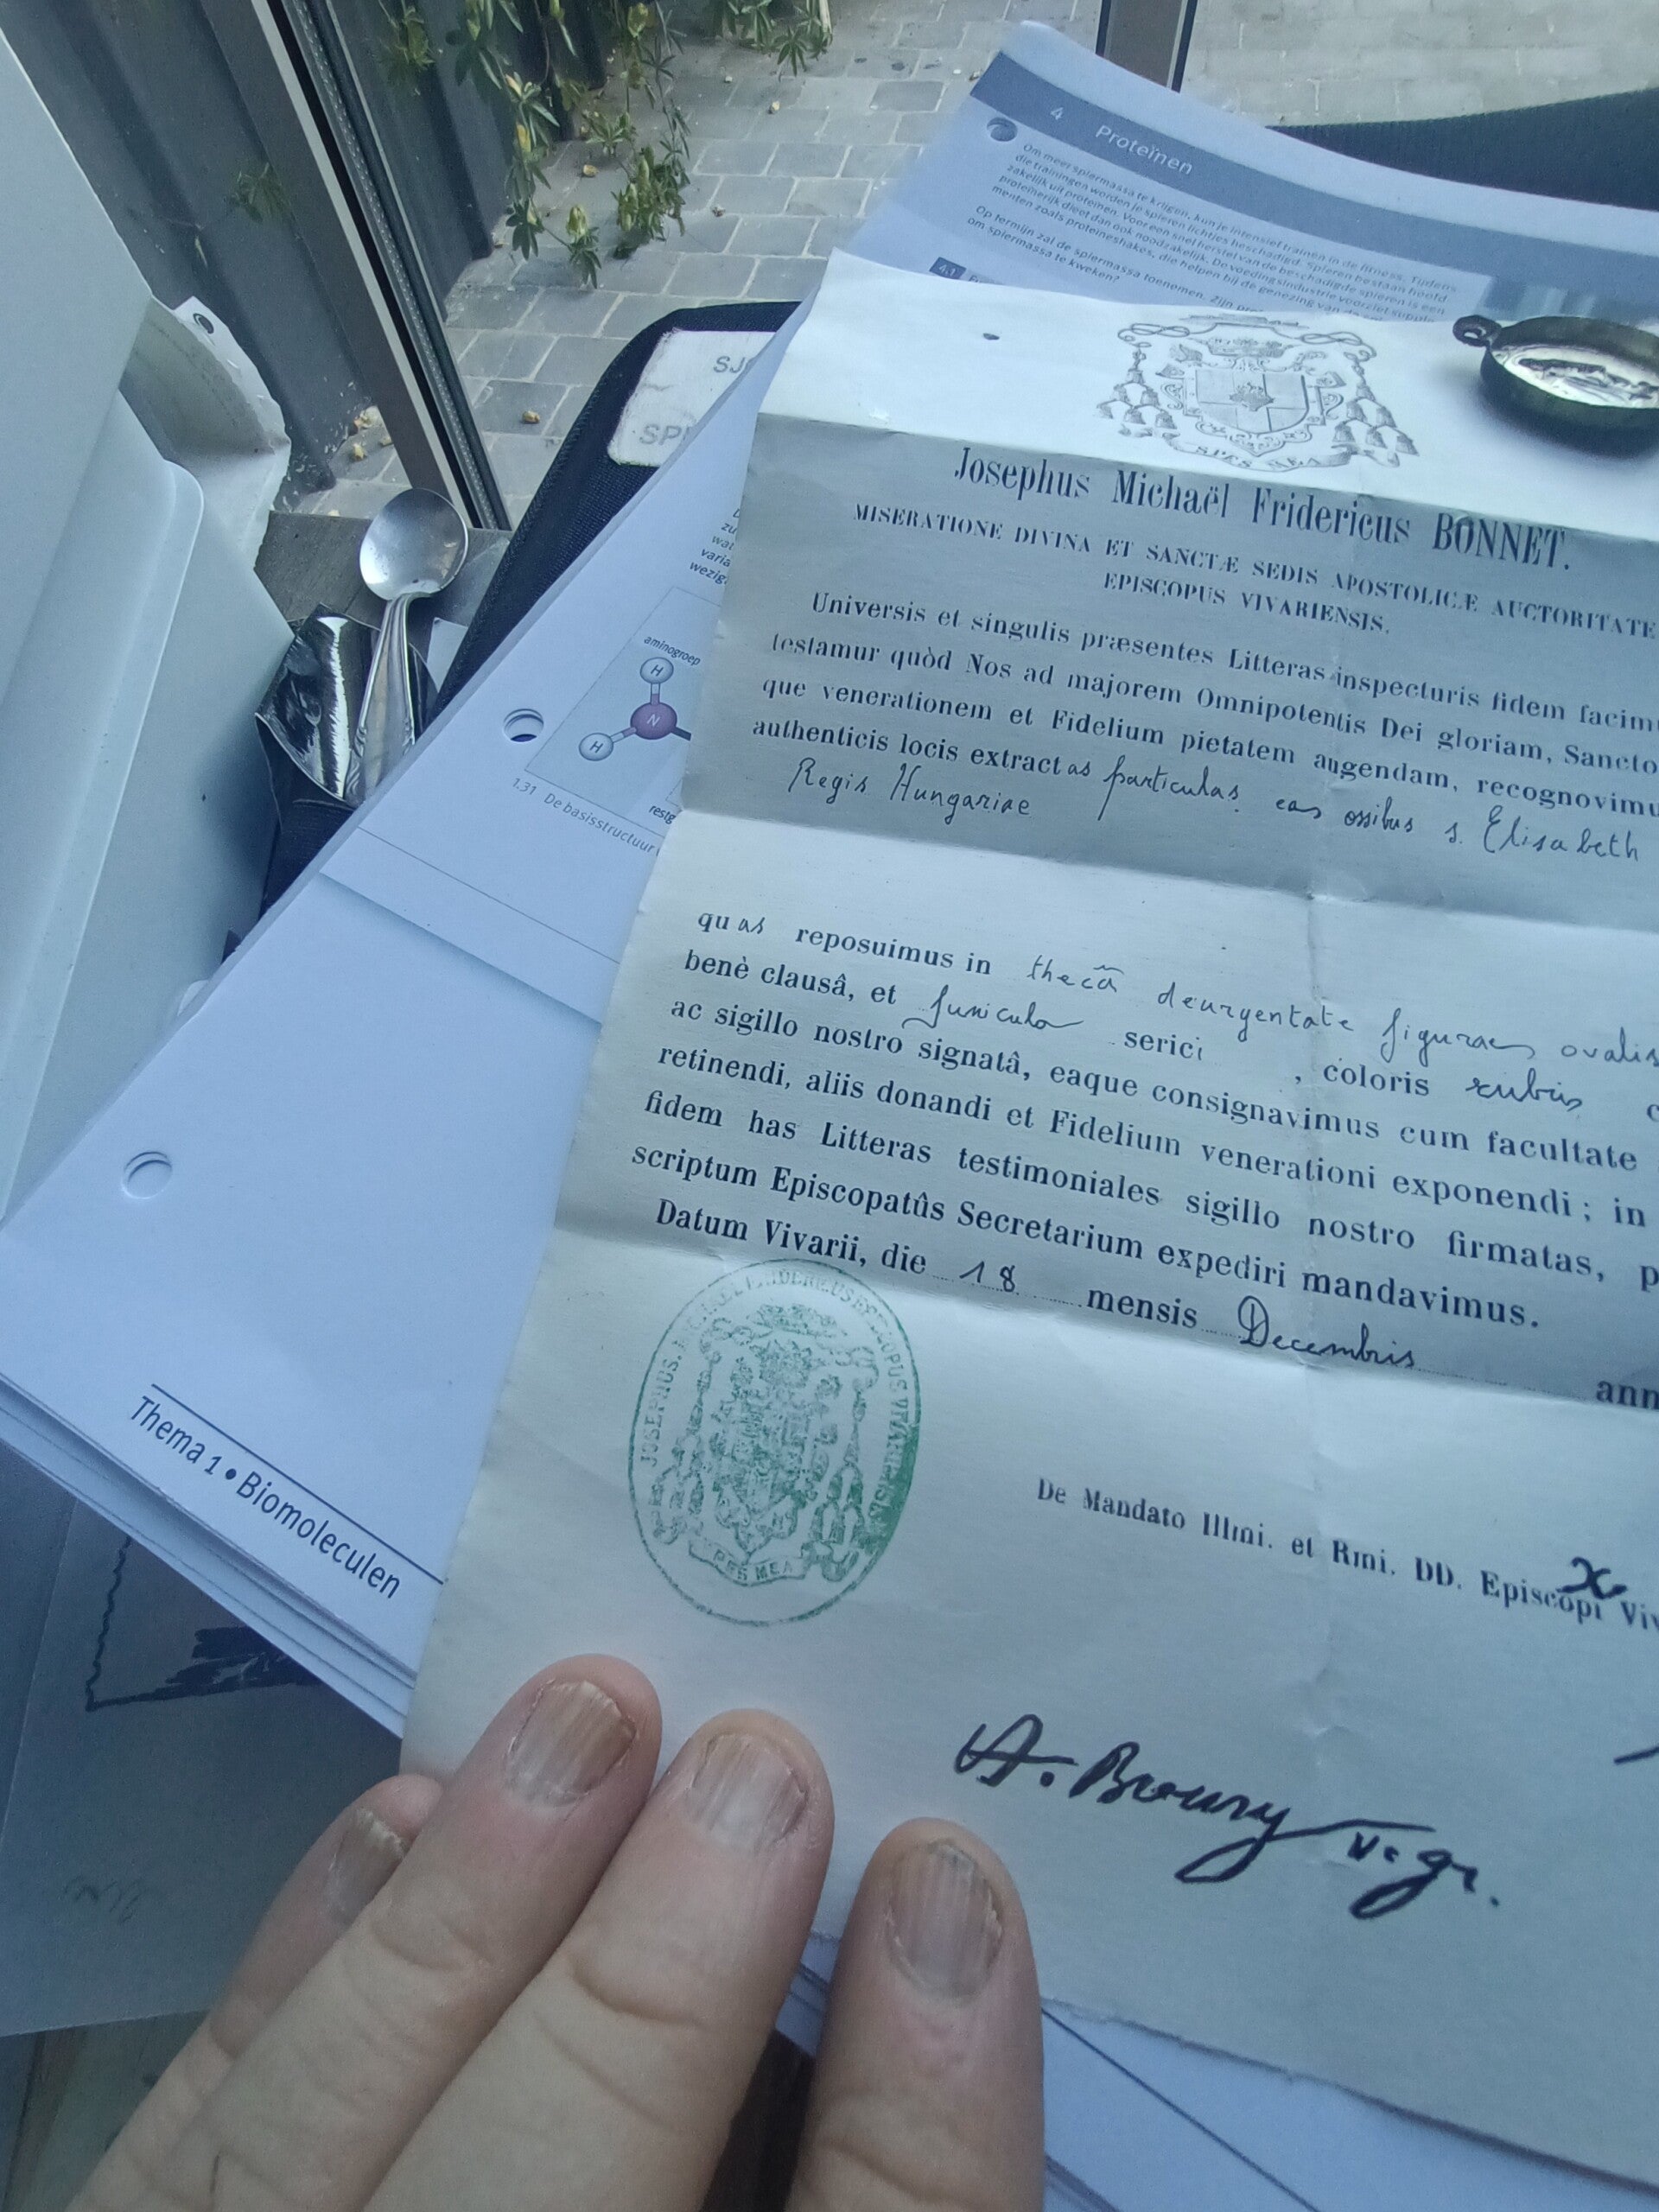 4 Proteïnen
Om meer spiermassa te krijgen, kun je intensief trainen in de fitness. Tijdens
die trainingen worden je spieren lichtjes beschadigd. Spieren bestaan hoofd
zakelijk uit proteïnen. Voor een snel herstel van de beschadigde spieren is een
proteïnerijk dieet dan ook noodzakelijk. De voedingsindustrie voorziet supple
menten zoals proteïneshakes, die helpen bij de genezing van de
Op termijn zal de spiermassa toenemen. Zijn
om spiermassa te kweken?
4.1
SPES MEA
Josephus Michaël Fridericus BONNET.
MISERATIONE DIVINA ET SANCTÆ SEDIS APOSTOLICÆ AUCTORITATE
EPISCOPUS VIVARIENSIS.
Universis et singulis præsentes Litteras inspecturis fidem facim
testamur quòd Nos ad majorem Omnipotentis Dei gloriam, Sancto
que venerationem et Fidelium pietatem augendam, recognovimu
authenticis locis extractas particulas eas ossibus s. Elisabeth
Regis Hungariae
quas reposuimus in thecâ deargentate figurae ovalis
benè clausâ, et funiculo serici , coloris rubris c
ac sigillo nostro signatâ, eaque consignavimus cum facultate
retinendi, aliis donandi et Fidelium venerationi exponendi ; in
fidem has Litteras testimoniales sigillo nostro firmatas, p
scriptum Episcopatûs Secretarium expediri mandavimus.
Datum Vivarii, die 18 mensis Decembris ann
JOSEPHUS. MICHAEL FRIDERICUS EPISCOPUS VIVARIENSIS
SPES MEA
De Mandato Illmi. et Rmi. DD. Episcopi Viv
x
v. gr.
SJ
SP
wat
varia
wezig
aminogroep
H
N
H
restg
1.31 De basisstructuur
Thema 1 • Biomoleculen